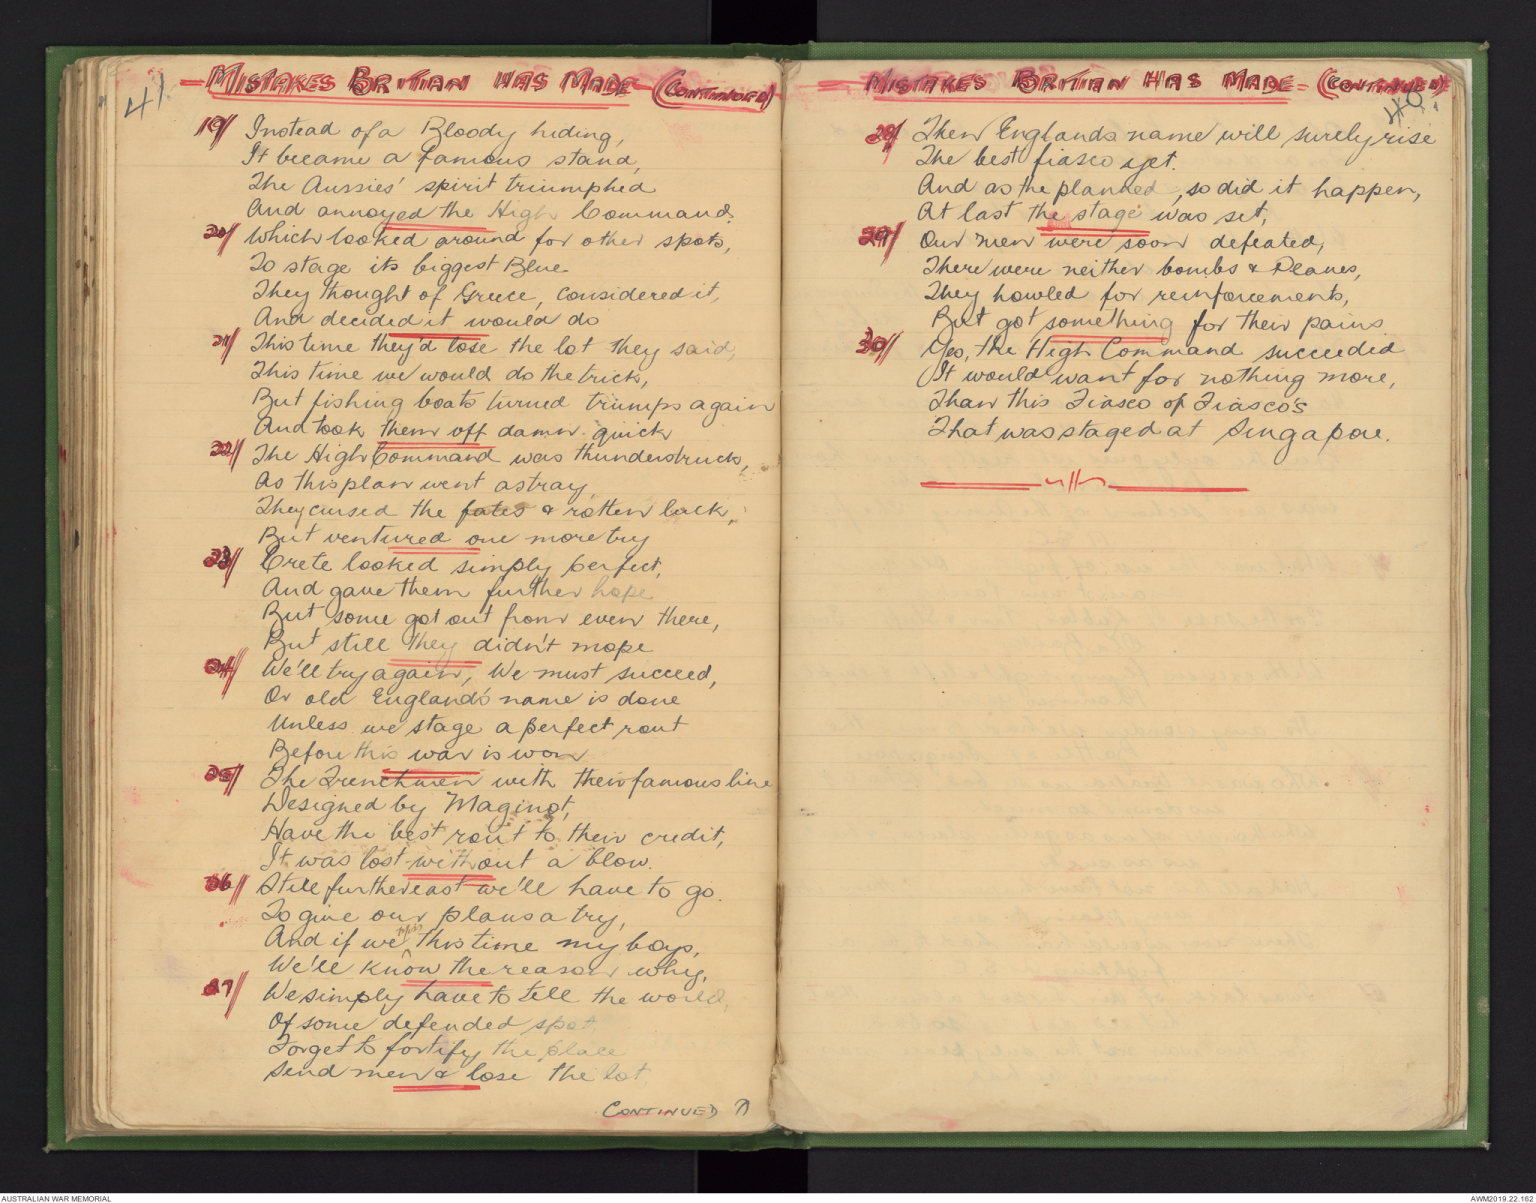 41
MISTAKES BRITIAN HAS MADE (CONTINUED)
19// Instead of a Bloody hiding,
It became a famous stand,
The Aussies' spirit triumphed
And annoyed the High Command.
20// Which looked around for other spots,
To stage its biggest Blue
They thought of Greece, considered it,
And decided it would do
21// This time they'd lose the lot they said,
This time we would do the trick,
But fishing boats turned trumps again
And took them off damn quick
22// The High Command was thunderstruck,
As this plan went astray,
They cursed the fates & rotten luck,
But ventured one more try
23// Crete looked simply perfect,
And gave them further hope
But some got out from even there,
But still they didn't mope
24// We'll try again, We must succeed,
Or old England's name is done
Unless we stage a perfect rout
Before this war is won
25// The Frenchmen with their famous line
Designed by Maginot,
Have the best rout to their credit,
It was lost without a blow.
26// Still further east we'll have to go.
To give our plans a try,
And if we this time my boys,
We'll know the reason why,
27// We simply have to tell the world,
Of some defended spot,
Forget to fortify the place
Send men & lose the lot
CONTINUED
MISTAKES BRITIAN HAS MADE = (CONTINUED)
40
28// Then Englands name will surely rise
The best fiasco yet.
And as the planned, so did it happen,
At last the stage was set,
29// Our men were soon defeated,
There were neither bombs & Planes,
They howled for reinforcements,
But got something for their pains
30// Yes, the High Command succeeded
It would want for nothing more,
Than this Fiasco of Fiasco's
That was staged at Singapore.
AUSTRALIAN WAR MEMORIAL
AWM2019.22.162